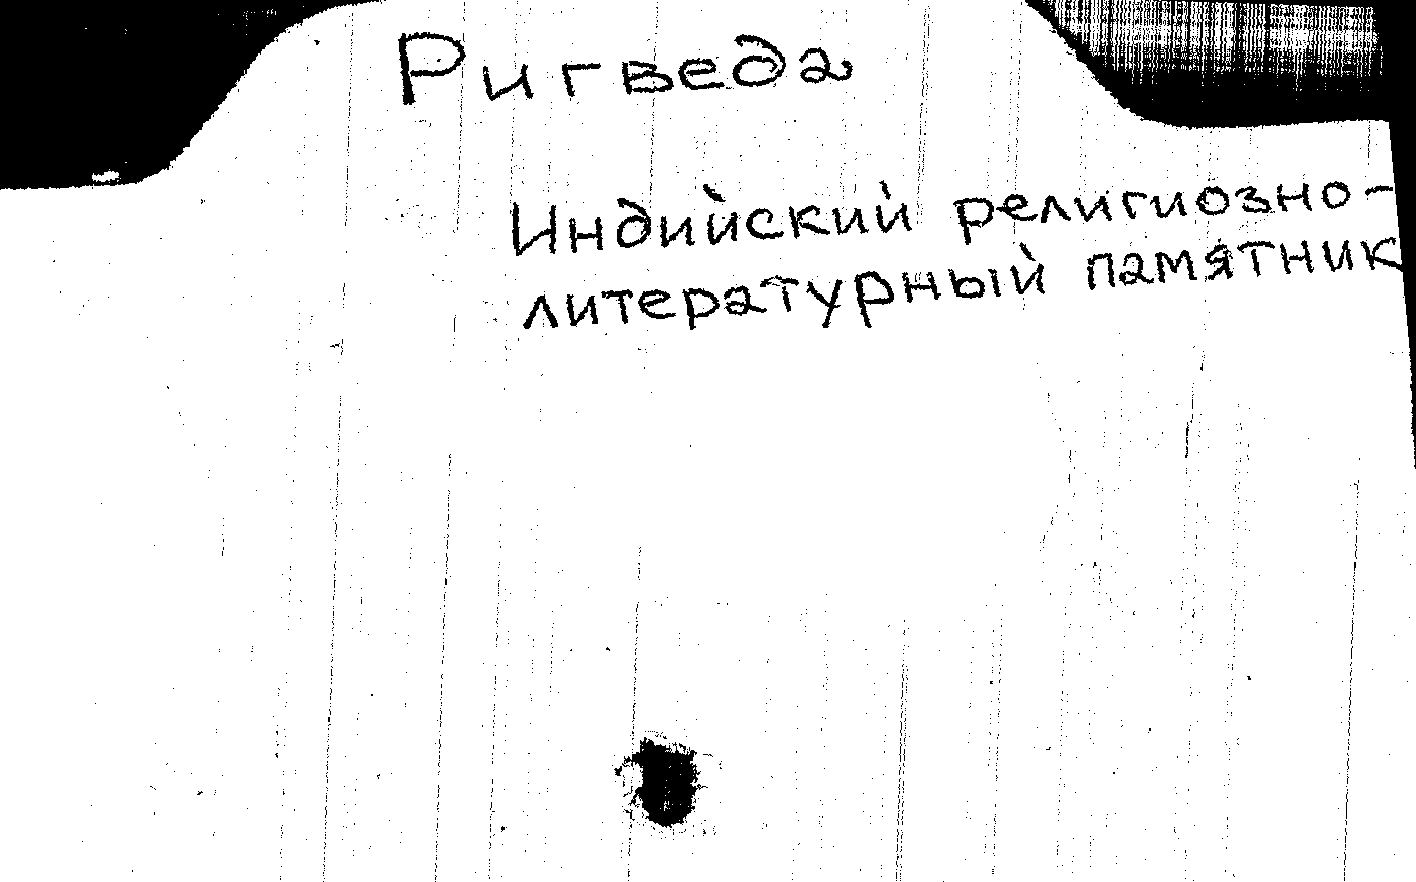 Ригведа
Индийский религиозно-
литературный памятник